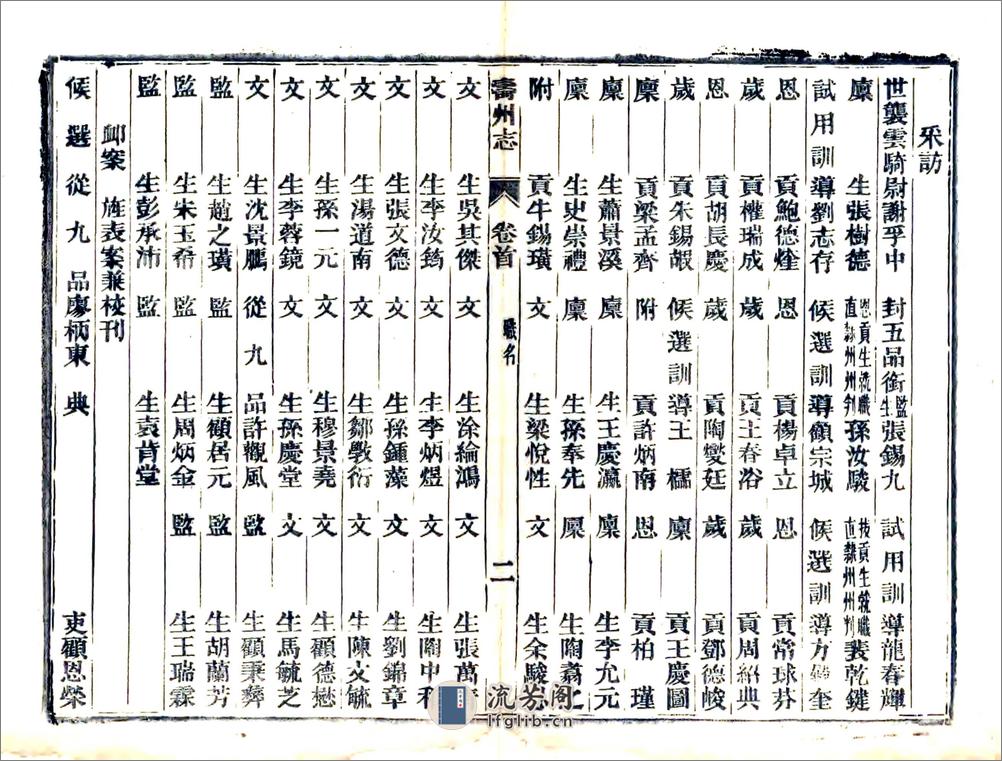 采訪
世襲雲騎尉謝孚中 封五品銜監生張錫九 試用訓導龍春輝
廩生張樹德 恩貢生就職直隸州州判孫汝駿 拔貢生就職直隸州州判裴乾鍵
試用訓導劉志存 候選訓導顧宗城 候選訓導方 奎
恩貢鮑德煃 恩貢楊卓立 恩貢常球芬
歲貢權瑞成 歲貢王春浴 歲貢周紹典
恩貢胡長慶 歲貢陶燮廷 歲貢鄧德峻
歲貢朱錫嘏 候選訓導王檽 廩貢王慶圖
廩貢梁孟齊 附貢許炳南 恩貢柏瑾
廩生蕭景溪 廩生王慶瀛 廩生李允元
廩生史崇禮 廩生孫奉先 廩生陶翥
附貢牛錫璜 文生梁悅性 文生余駿
壽州志 卷首 職名 二
文生吳其傑 文生涂綸鴻 文生張萬
文生李汝筠 文生李炳煜 文生陶中和
文生張文德 文生孫鍾藻 文生劉錦章
文生湯道南 文生鄒斅衍 文生陳文毓
文生孫一元 文生穆景堯 文生顧德懋
文生李蓉鏡 文生孫慶堂 文生馬毓芝
文生沈景鵬 從九品許觀風 監生顧秉彝
監生趙之璜 監生顧居元 監生胡蘭芳
監生宋玉希 監生周炳金 監生王瑞霖
監生彭承沛 監生袁肯堂
卹案 旌表案兼校刊
候選從九品廖柄東 典吏顧恩榮
流芳閣
lfglib.cn